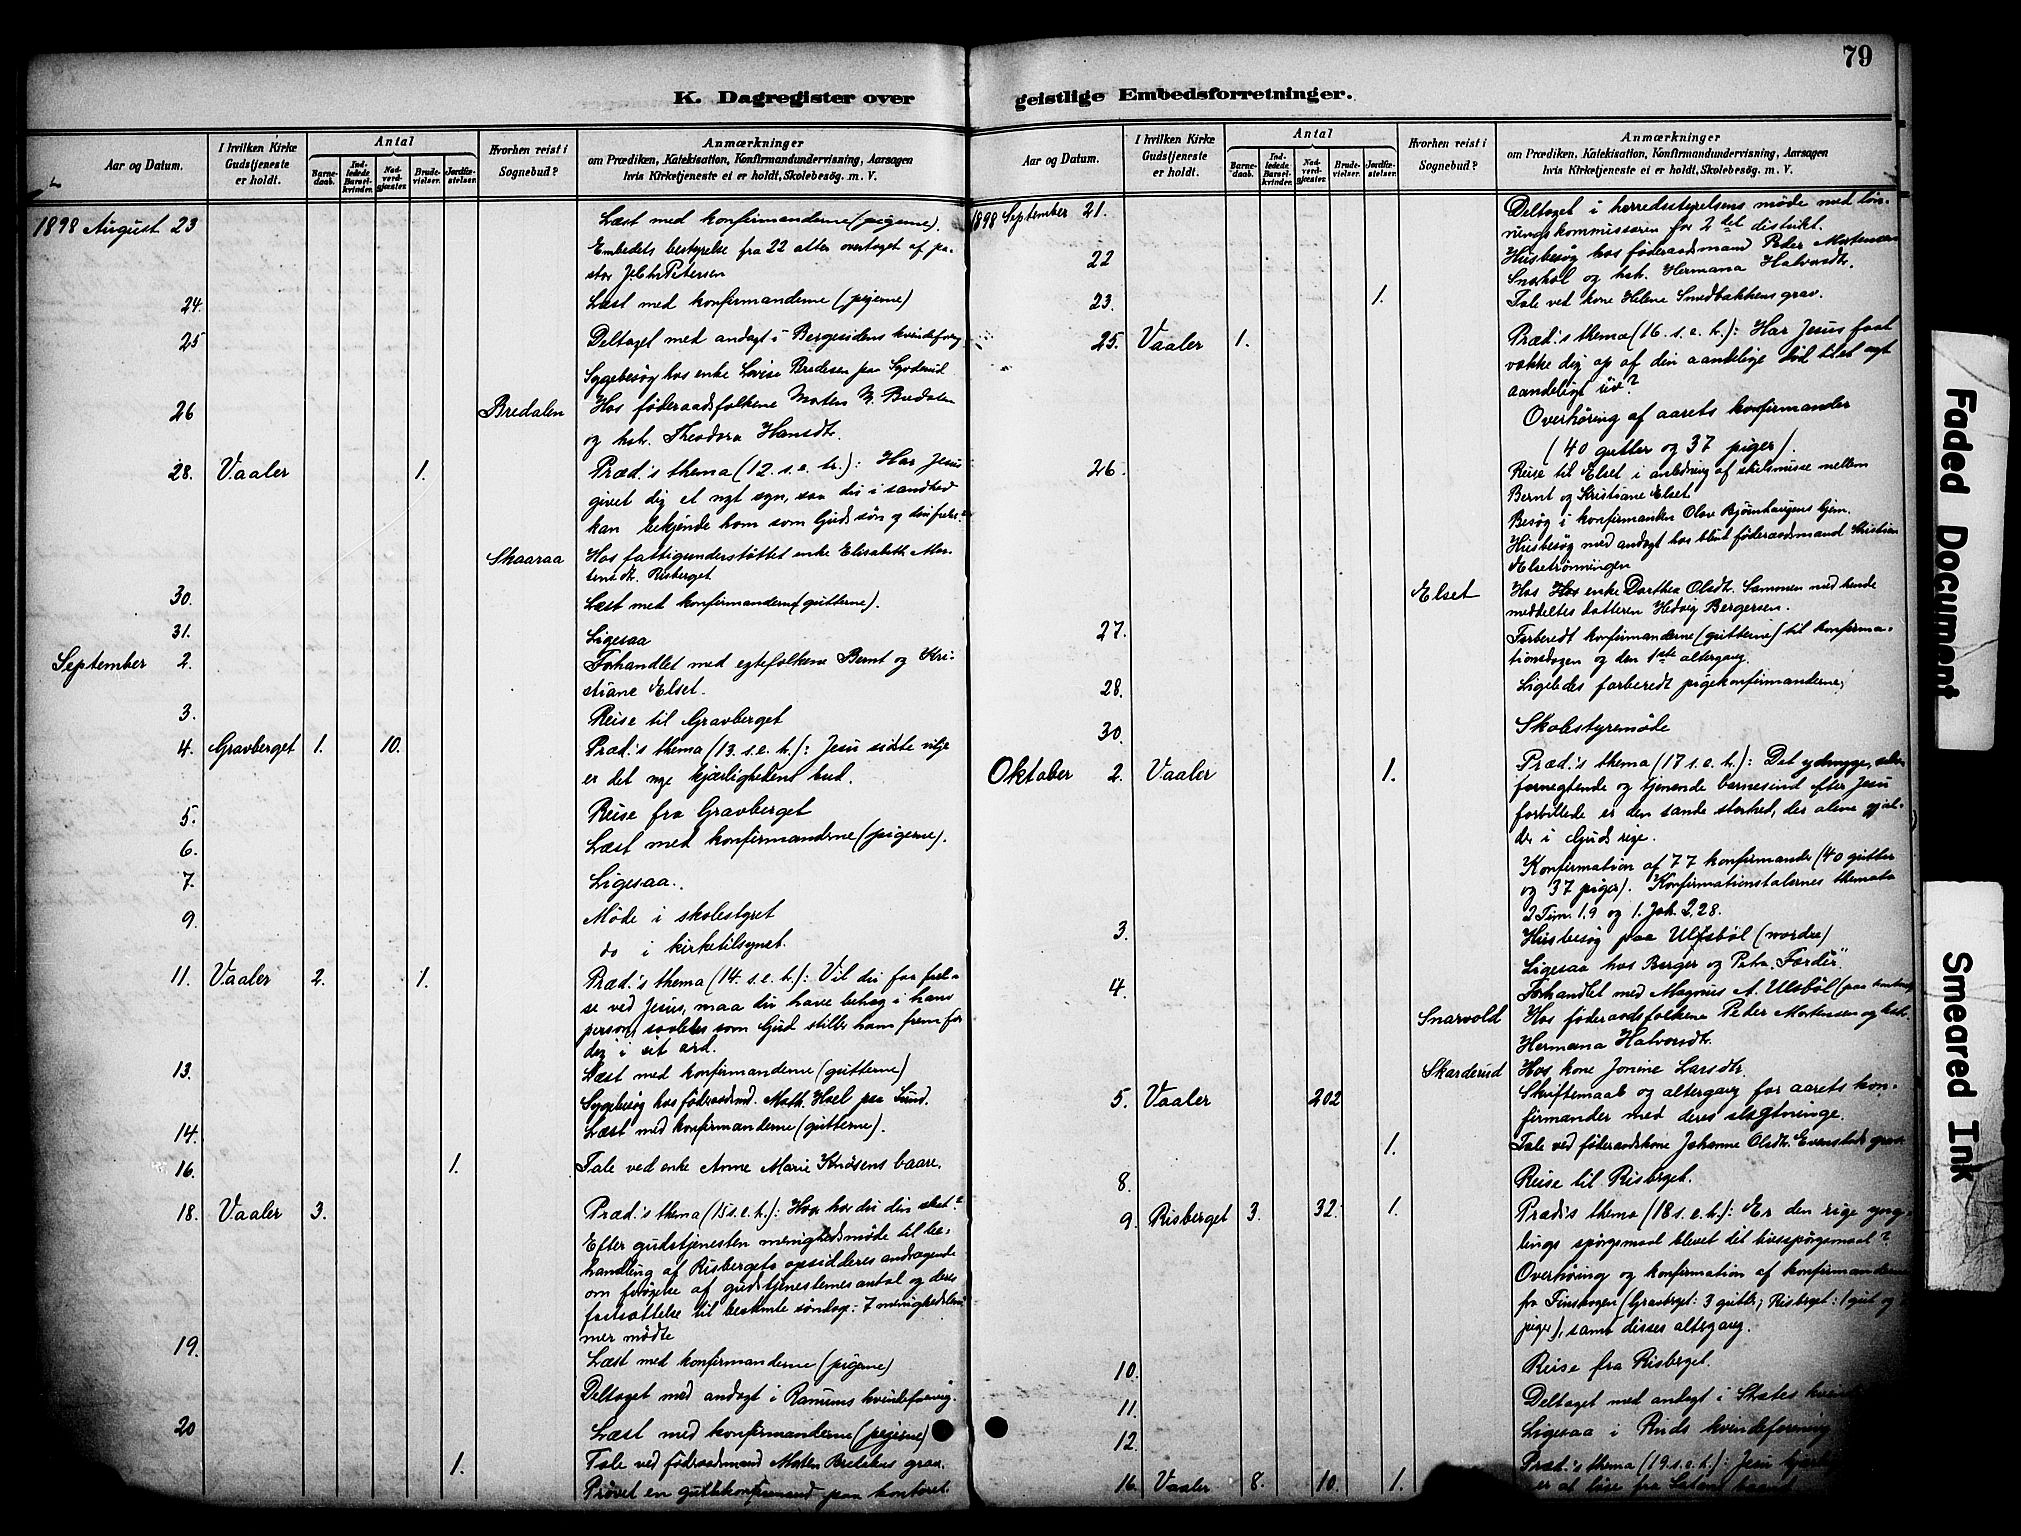 79
K. Dagregister over geistlige Embedsforretninger.
Aar og Datum.
I hvilken Kirke Gudstjeneste er holdt.
Antal
Barnedaab.
Indledede Barselkvinder.
Nadverdgjæster.
Brudevielser.
Jordfæstelser.
Hvorhen reist i Sognebud?
Anmærkninger
om Prædiken, Katekisation, Konfirmandundervisning, Aarsagen
hvis Kirketjeneste ei er holdt, Skolebesøg. m. V.
1898 August 23 Læst med konfirmanderne (pigerne).
Embedets bestyrelse fra 22 atter overtaget af pa-
stor Petersen
24. Læst med konfirmanderne (pigerne)
25 Deltaget med andagt i Bergesidens kvindeforg
Sygebesøg hos enke Lovise Bredesen paa
26 Bredalen Hos føderaadsfolkene Morten M. Bredalen
og hst. Theodora Hansdtr.
28. Vaaler 1. Præd.'s thema (12. s. e. tr.): Har Jesus
givet dig et nyt syn, saa du i sandhed
kan bekjende ham som Guds søn og din frelser?
Skaaraa Hos fattigunderstøttet enke Elisabeth Mor-
tensdtr. Risberget
30. Læst med konfirmanderne (gutterne).
31. Ligesaa
September 2. Forhandlet med egtefolkene Bernt og Kri-
stiane Elset.
3. Reise til Gravberget
4. Gravberget 1. 10. Præd.'s thema (13. s. e. tr.): Jesu sidte vilje
er det nye kjærlighedens bud.
5. Reise fra Gravberget
6. Læst med konfirmanderne (pigerne).
7. Ligesaa.
9. Møde i skolestyret
do i kirketilsynet.
11. Vaaler 2. 1. Præd.'s thema (14. s. e. tr.): Vil du faa frel-
se ved Jesus, maa du have behag i hans
person, saaledes som Gud stiller ham frem for
dig i sit ord.
13. Læst med konfirmanderne (gutterne)
Sygebesøg hos føderaadsmd. Math. Hoel paa Sund.
14. Læst med konfirmanderne (gutterne).
16. 1. Tale ved enke Anne Marie Knosens baare.
18. Vaaler 3. Præd.'s thema (15 s. e. tr.): Hvor har du din skat?
Efter gudstjenesten menighedsmøde til be-
handling af Risbergets opsidderes andragende
om forøgelse af gudstjenesternes antal og deres
fortsættelse til bestemte søndage: 7 menighedslem-
mer mødte
19. Læst med konfirmanderne (pigerne)
Deltaget med andagt i Ramuns kvindeforenig.
20 Læst med konfirmanderne (pigerne)
1. Tale ved føderaadsmand Morten grav.
Prøvet en guttekonfirmand paa kontoret.
Aar og Datum.
I hvilken Kirke Gudstjeneste er holdt.
Antal
Barnedaab.
Indledede Barselkvinder.
Nadverdgjæster.
Brudevielser.
Jordfæstelser.
Hvorhen reist i Sognebud?
Anmærkninger
om Prædiken, Katekisation, Konfirmandundervisning, Aarsagen
hvis Kirketjeneste ei er holdt, Skolebesøg. m. V.
1898 September 21. Deltaget i herredsstyrelsens møde med løn-
ningskommissæren for 2det distrikt.
22 Husbesøg hos føderaadsmand Peder Mortensen
og hst. Hermana Halvorsdtr.
23. 1. Tale ved kone Helene Smedbakkens grav.
25. Vaaler 1. Præd.'s thema (16. s. e. tr.): Har Jesus faat
vække dig op af din aandelige død til et nyt
aandeligt liv?
Overhøring af aarets konfirmander
(40 gutter og 37 piger).
26. Reise til Elset i anledning af skilsmisse mellem
Bernt og Kristiane Elset
Besøg i konfirmanden Olav Bjørnhaugens hjem.
Husbesøg med andagt hos blind føderaadsmand Kristian
Elsetrønningen
Elset Hos enke Dorthea Olsdtr. Sammen med hende
meddeltes datteren Hedvig Bergersen.
27. Forberedt konfirmanderne (gutterne) til konfirma-
tionsdagen og den 1ste altergang.
28. Ligeledes forberedt pigekonfirmanderne;
30. Skolestyremøde
Oktober 2. Vaaler 1. Præd.'s thema (17 s. e. tr.): Det ydmyge, selv-
fornegtende og tjenende barnesind efter Jesu
forbillede er den sande storhed, der alene gjæl-
der i Guds rige.
Konfirmation af 77 konfirmander (40 gutter
og 37 piger). Konfirmationstalernes themata
2 Tim. 1,9 og 1. Joh. 2,28.
3. Husbesøg paa Ulfsbøl (nordre)
Ligesaa hos Berger og Petra "Fordür"
4. Forhandlet med Magnus A. Ulsbøl (paa kontoret)
Snarvold Hos føderaadsfolkene Peder Mortensen og hst.
Hermana Halvorsdtr.
Skarderud Hos kone Jonine Larsdtr.
5. Vaaler 202 Skriftemaal og altergang for aarets kon-
firmander med deres slægtninge.
1. Tale ved føderaadskone Johanne Olsdtr. Evenstads grav
8. Reise til Risberget.
9. Risberget 3. 32. 1. Præd.'s thema (18 s. e. tr.): Er den rige yng-
lings spørgsmaal blevet dit livsspørgsmaal?
Overhøring og konfirmation af konfirmanderne
fra Finskogen (Gravberget: 3 gutter; Risberget: 1 gut og
piger), samt disses altergang.
10. Reise fra Risberget.
11. Deltaget med andagt i
12. Ligesaa i Ruds kvindeforening
16. Vaaler 8. 10. 1. Præd.'s thema (19. s. e. tr.): Jesu
er at løse fra Satans baand
Faded Document
Smeared Ink